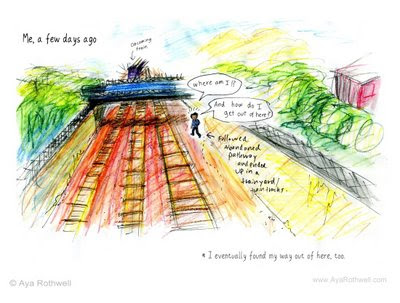 Me, a few days ago
Oncoming
train
Where am I!?
And how do I
get out of here?
Followed
abandoned
pathway
and ended
up in a
trainyard/
train tracks.
* I eventually found my way out of here, too.
© Aya Rothwell
www.AyaRothwell.com